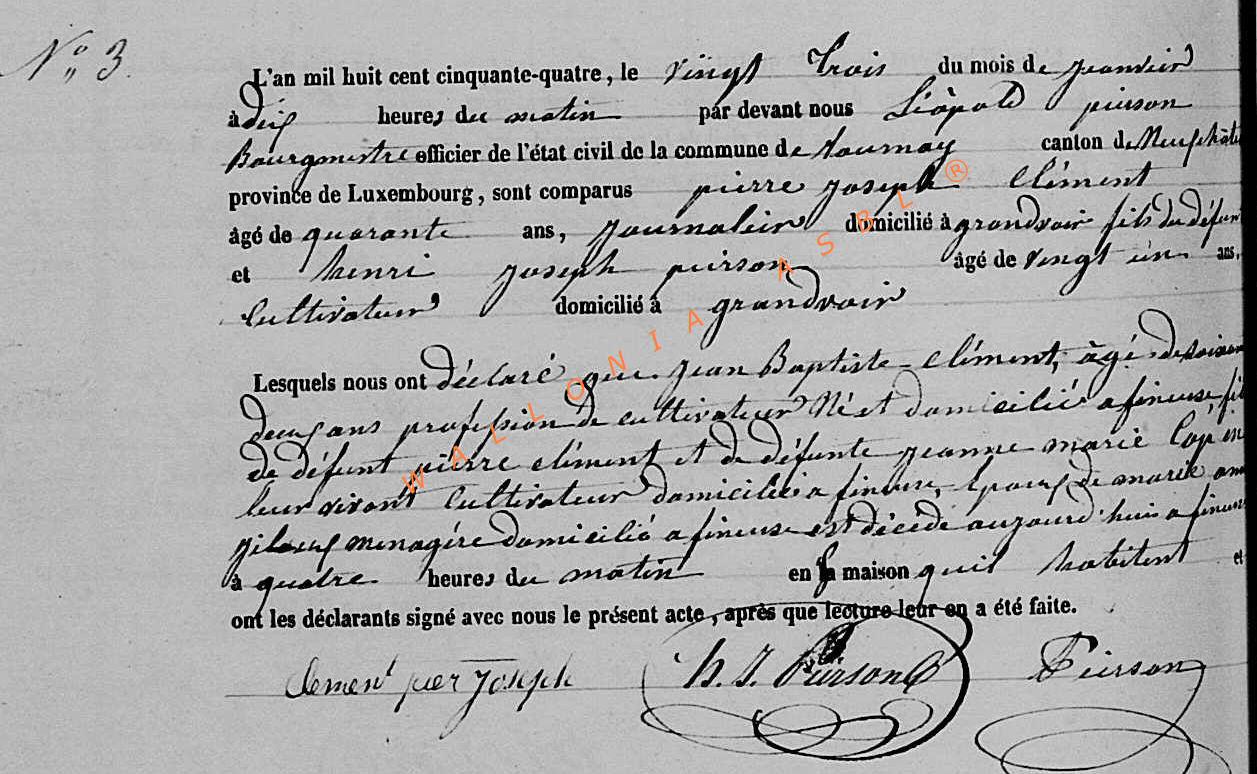 N° 3.
L'an mil huit cent cinquante-quatre, le vingt trois du mois de janvier
à dix heures du matin par devant nous Léopold pierson
Bourgmestre officier de l'état civil de la commune de tournay canton de Neufchâte
province de Luxembourg, sont comparus pierre joseph Clément
âgé de quarante ans, journalier domicilié à grandvoir fils du défunt
et henri joseph pierson âgé de vingt un ans,
Cultivateur domicilié à grandvoir
Lesquels nous ont déclaré que jean Baptiste Clément, âgé de soixan
deux ans profession de cultivateur Né et domicilié a fineuse fil
de défunt pierre clément et de défunte jeanne marie
leur vivant Cultivateur domicilié a fineuse, Epoux de marie ann
menagére domicilié a fineuse est décédé aujourd'huis a fineuse
à quatre heures du matin en la maison quil habitent et
ont les déclarants signé avec nous le présent acte, après que lecture leur en a été faite.
Clement pier Joseph H. J. Pierson Pierson
WALLONIA ASBL ®